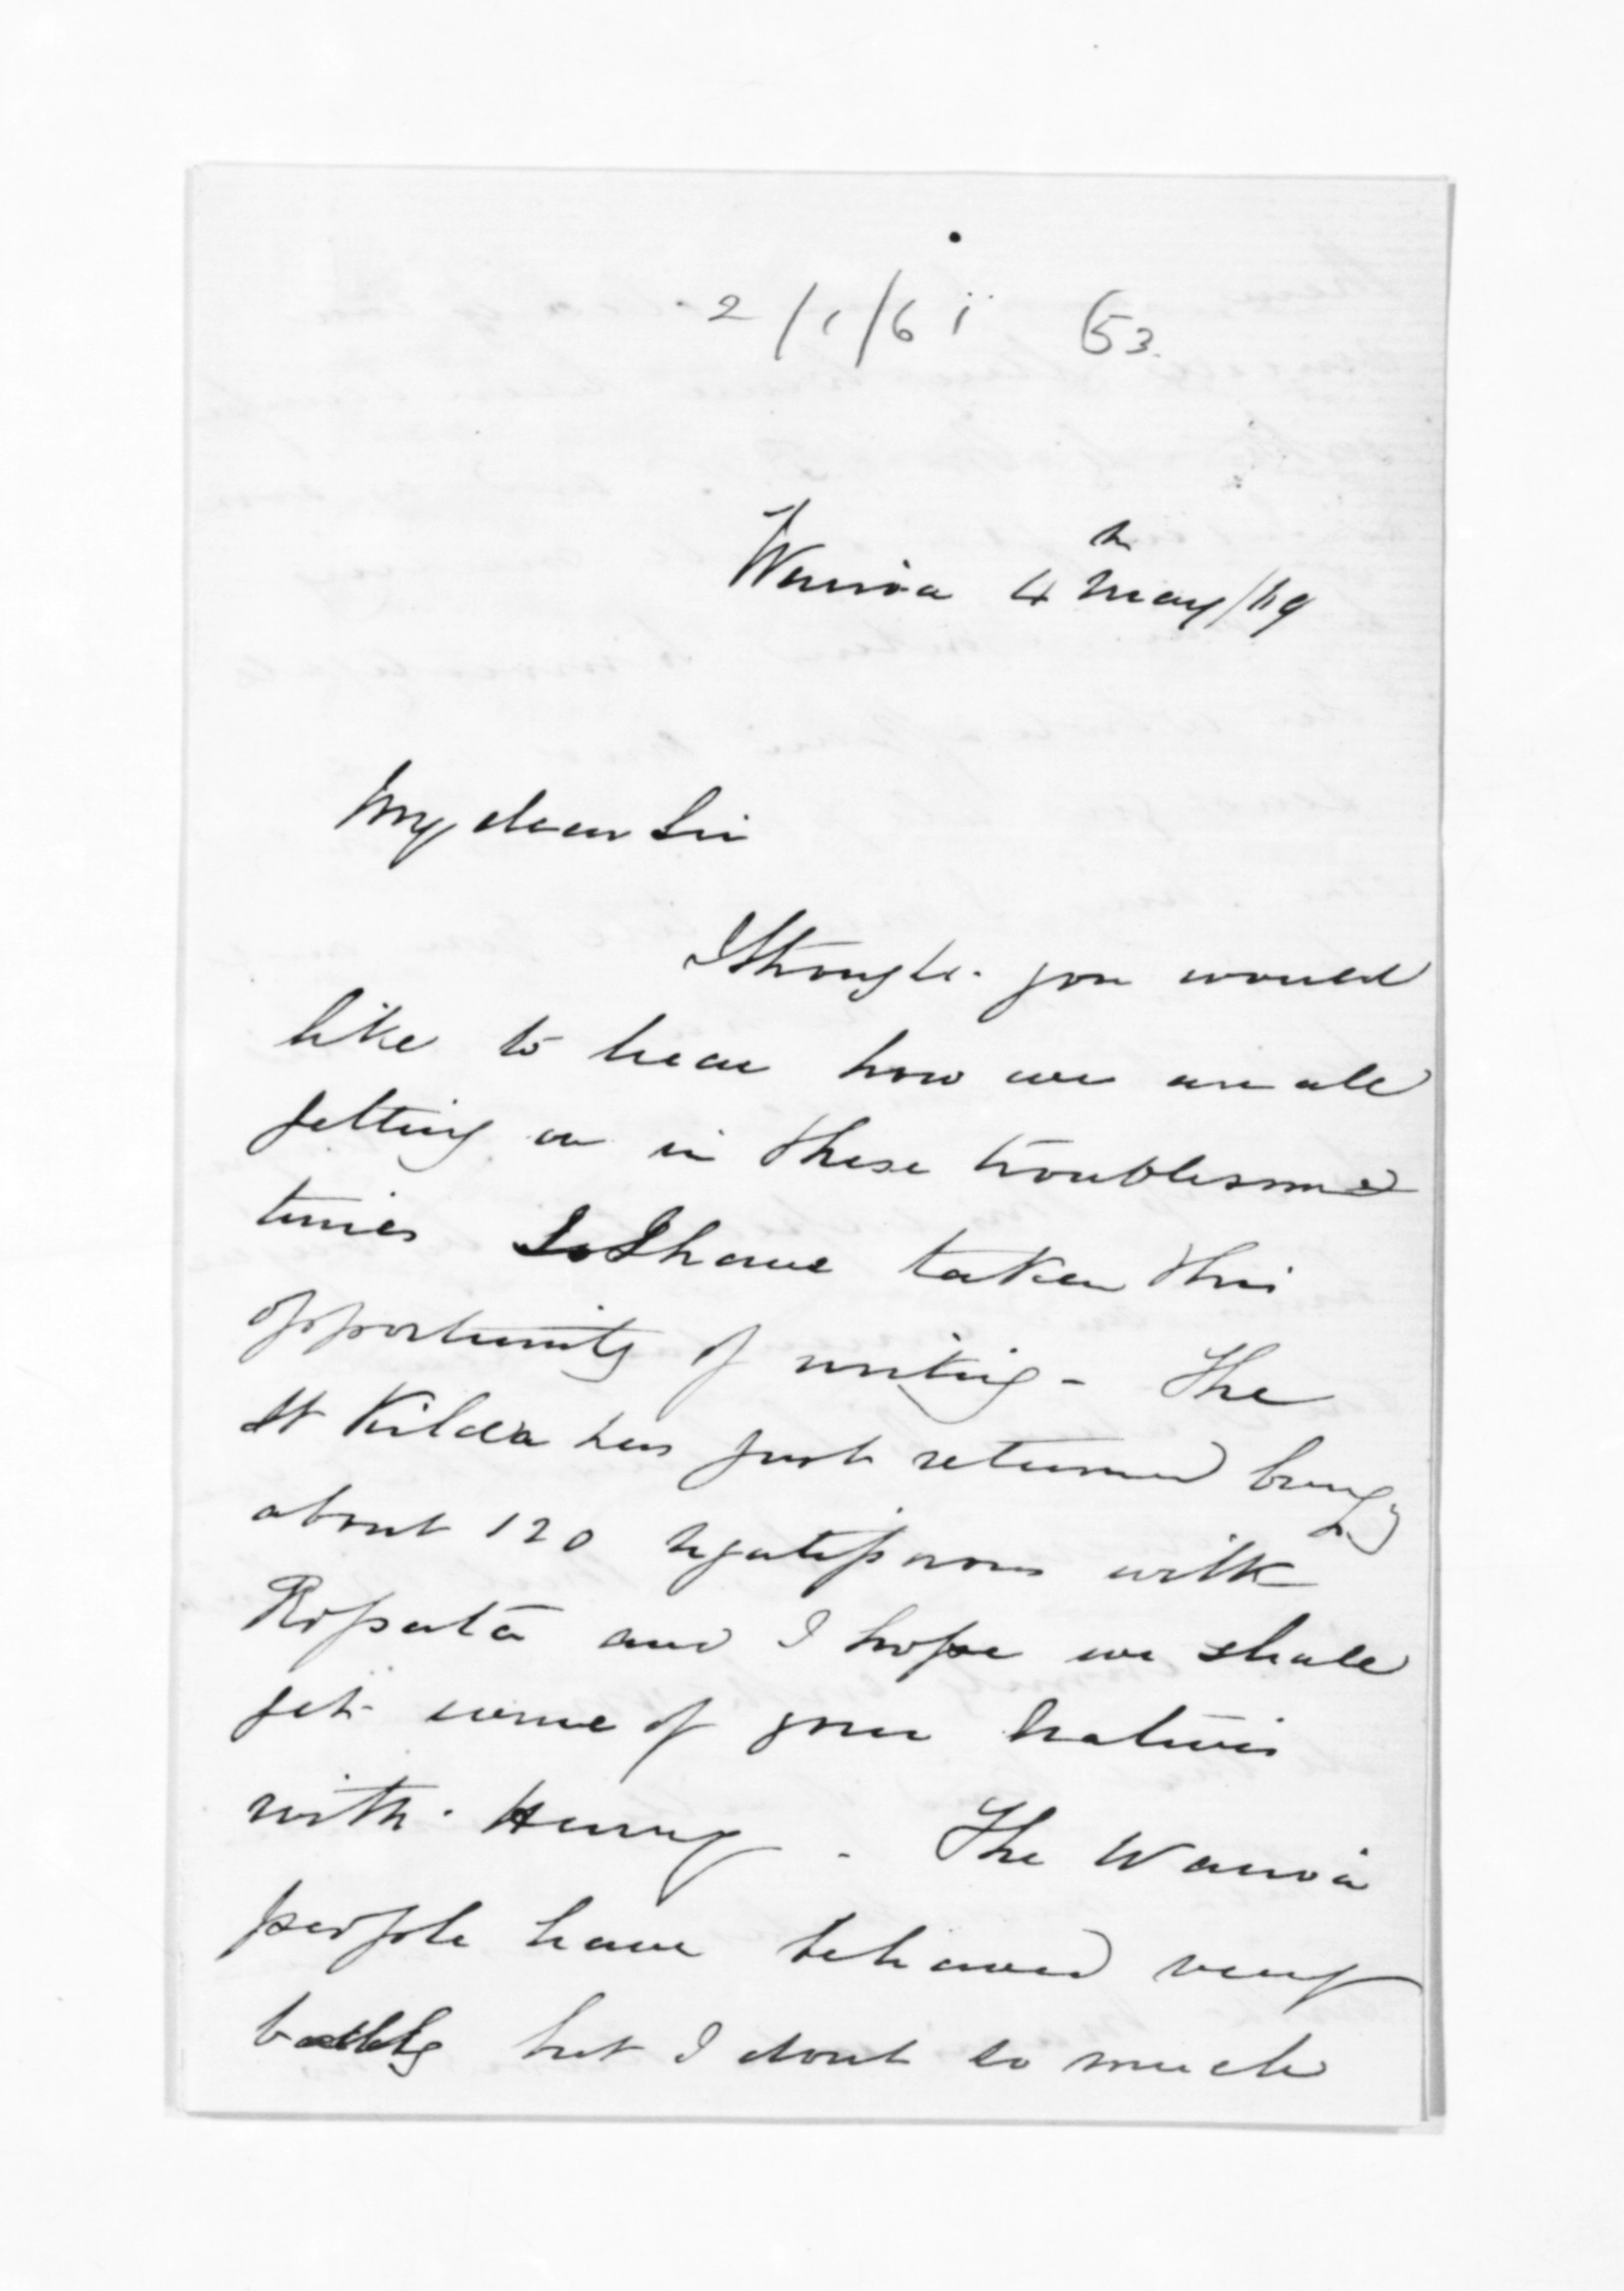 2/1/61 (53.
Wairoa 4th May/69
My dear Sir
I thought you would
like to hear how we are all
getting on in these troublesome
times So I have taken this
opportunity of writing - The
St Kilda has just returned bringg
about 120 Ngatiporous with
Ropata and I hope we shall
get some of your natives
with Henry. The Wairoa
people have behaved very
badly but I dont so much